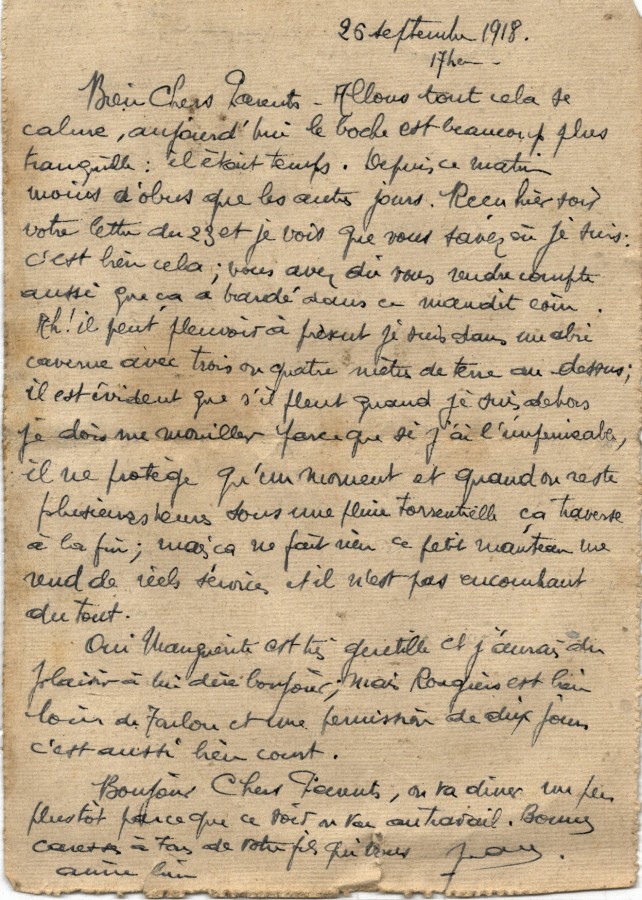 26 septembre 1918.
17 heu
Bien Chers Parents - Allons tout cela se
calme, aujourd'hui le boche est beaucoup plus
tranquille : il était temps. Depuis ce matin
moins d'obus que les autres jours. Reçu hier soir
votre lettre du 23 et je vois que vous savez où je suis :
c'est bien cela ; vous avez dû vous rendre compte
aussi que ça a bardé dans ce maudit coin.
Ah! il peut pleuvoir à présent je suis dans un abri
caverne avec trois ou quatre mètres de terre au dessus ;
il est évident que s'il pleut quand je suis dehors
je dois me mouiller parce que si j'ai l'imperméable,
il ne protège qu'un moment et quand on reste
plusieurs heures sous une pluie torrentielle ça traverse
à la fin ; mais ça ne fait rien ce petit manteau me
rend de réels services et il n'est pas encombrant
du tout.
Oui Marguerite est très gentille et j'aurais du
plaisir à lui dire bonjour ; mais Rougiers est bien
loin de Toulon et une permission de dix jours
c'est aussi bien court.
Bonjour Chers Parents, on va diner un peu
plustôt parce que ce soir on va au travail. Bonnes
caresses à tous de votre fils qui vous
aime bien